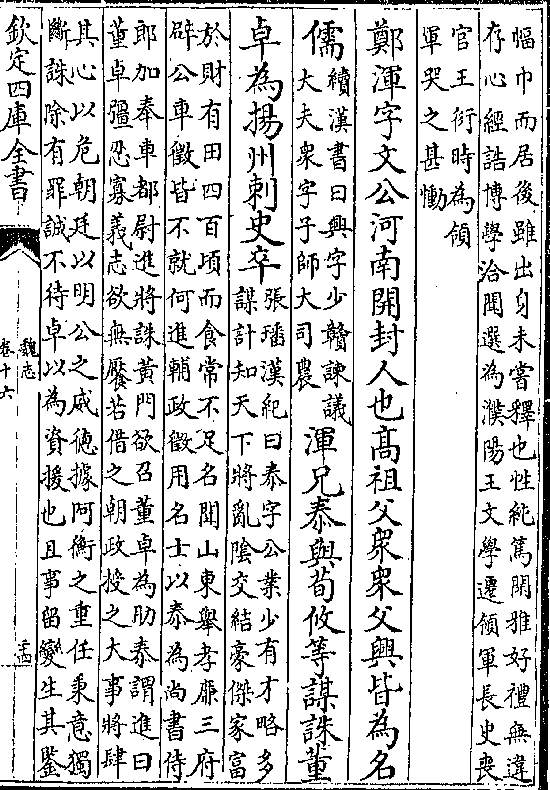 幅巾而居後雖出身未嘗釋也性純篤閑雅好禮無違
存心經誥博學洽聞選為濮陽王文學遷領軍長史喪
官王衍時為領
軍哭之甚慟
鄭渾字文公河南開封人也高祖父衆衆父興皆為名
儒
續漢書曰興字少贛諫議
大夫衆字子師大司農
渾兄泰與荀攸等謀誅董
卓為揚州刺史卒
張璠漢紀曰泰字公業少有才略多
謀計知天下將亂陰交結豪傑家富
於財有田四百頃而食常不足名聞山東舉孝廉三府
辟公車徵皆不就何進輔政徵用名士以泰為尚書侍
郎加奉車都尉進將誅黃門欲召董卓為助泰謂進曰
董卓彊忍寡義志欲無饜若借之朝政授之大事將肆
其心以危朝廷以明公之威德據阿衡之重任秉意獨
斷誅除有罪誠不待卓以為資援也且事留變生其鑒
欽定四庫全書
魏志
卷十六